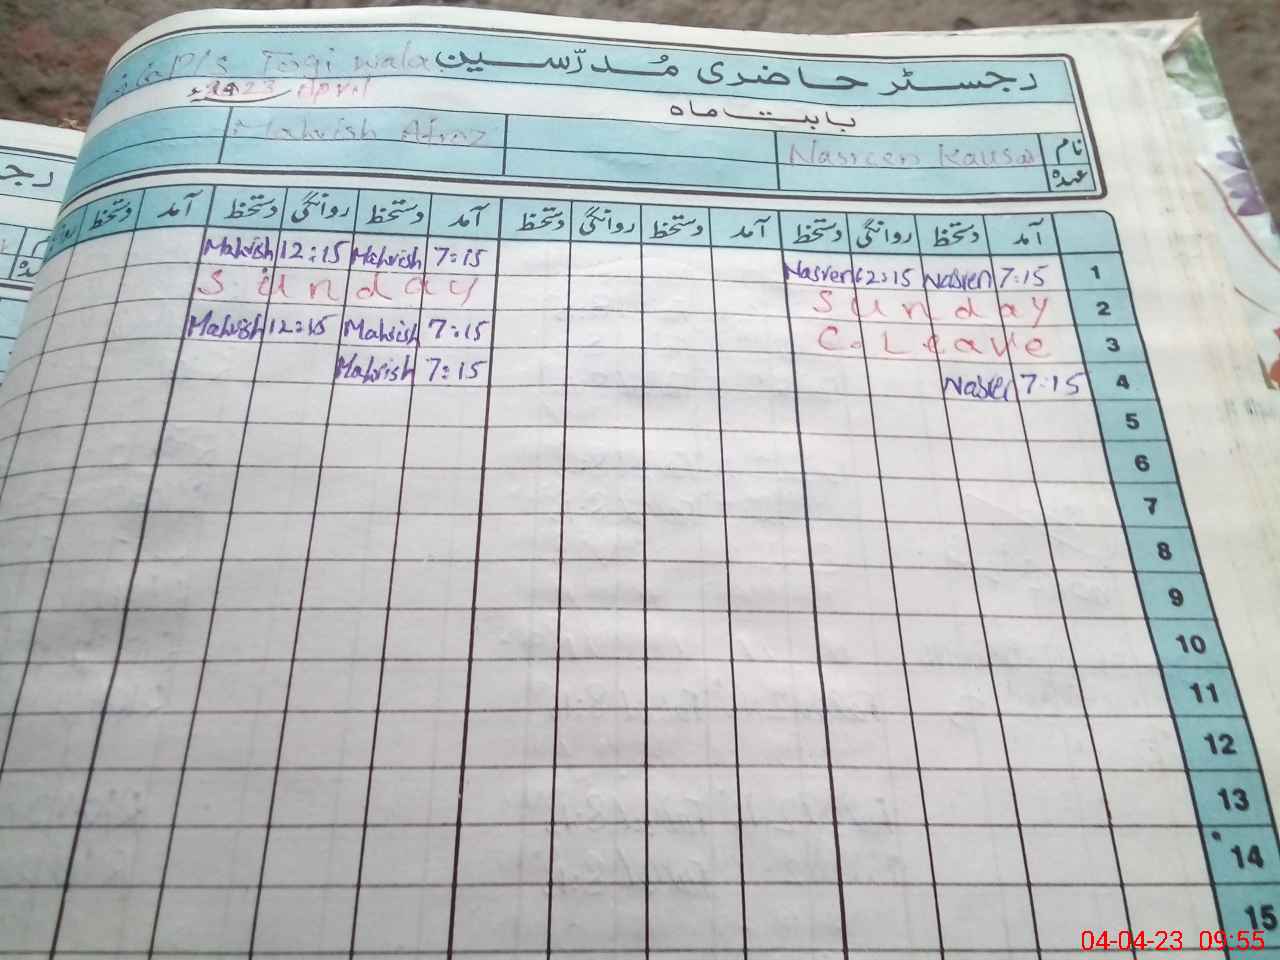 رجسٹر حاضری مُدرّسین P/s Togi wala
بابت ماہ 2023 April
نام Nasreen Kausar Mahvish Afraz
عہدہ
آمد دستخط روانگی دستخط آمد دستخط روانگی دستخط آمد دستخط روانگی دستخط آمد دستخط
1 7:15 Nasren 12:15 Nasren 7:15 Mahvish 12:15 Mahvish
2 Sunday Sunday
3 C. Leave 7:15 Mahvish 12:15 Mahvish
4 7:15 Nasren 7:15 Mahvish
5
6
7
8
9
10
11
12
13
14
15
04-04-23 09:55